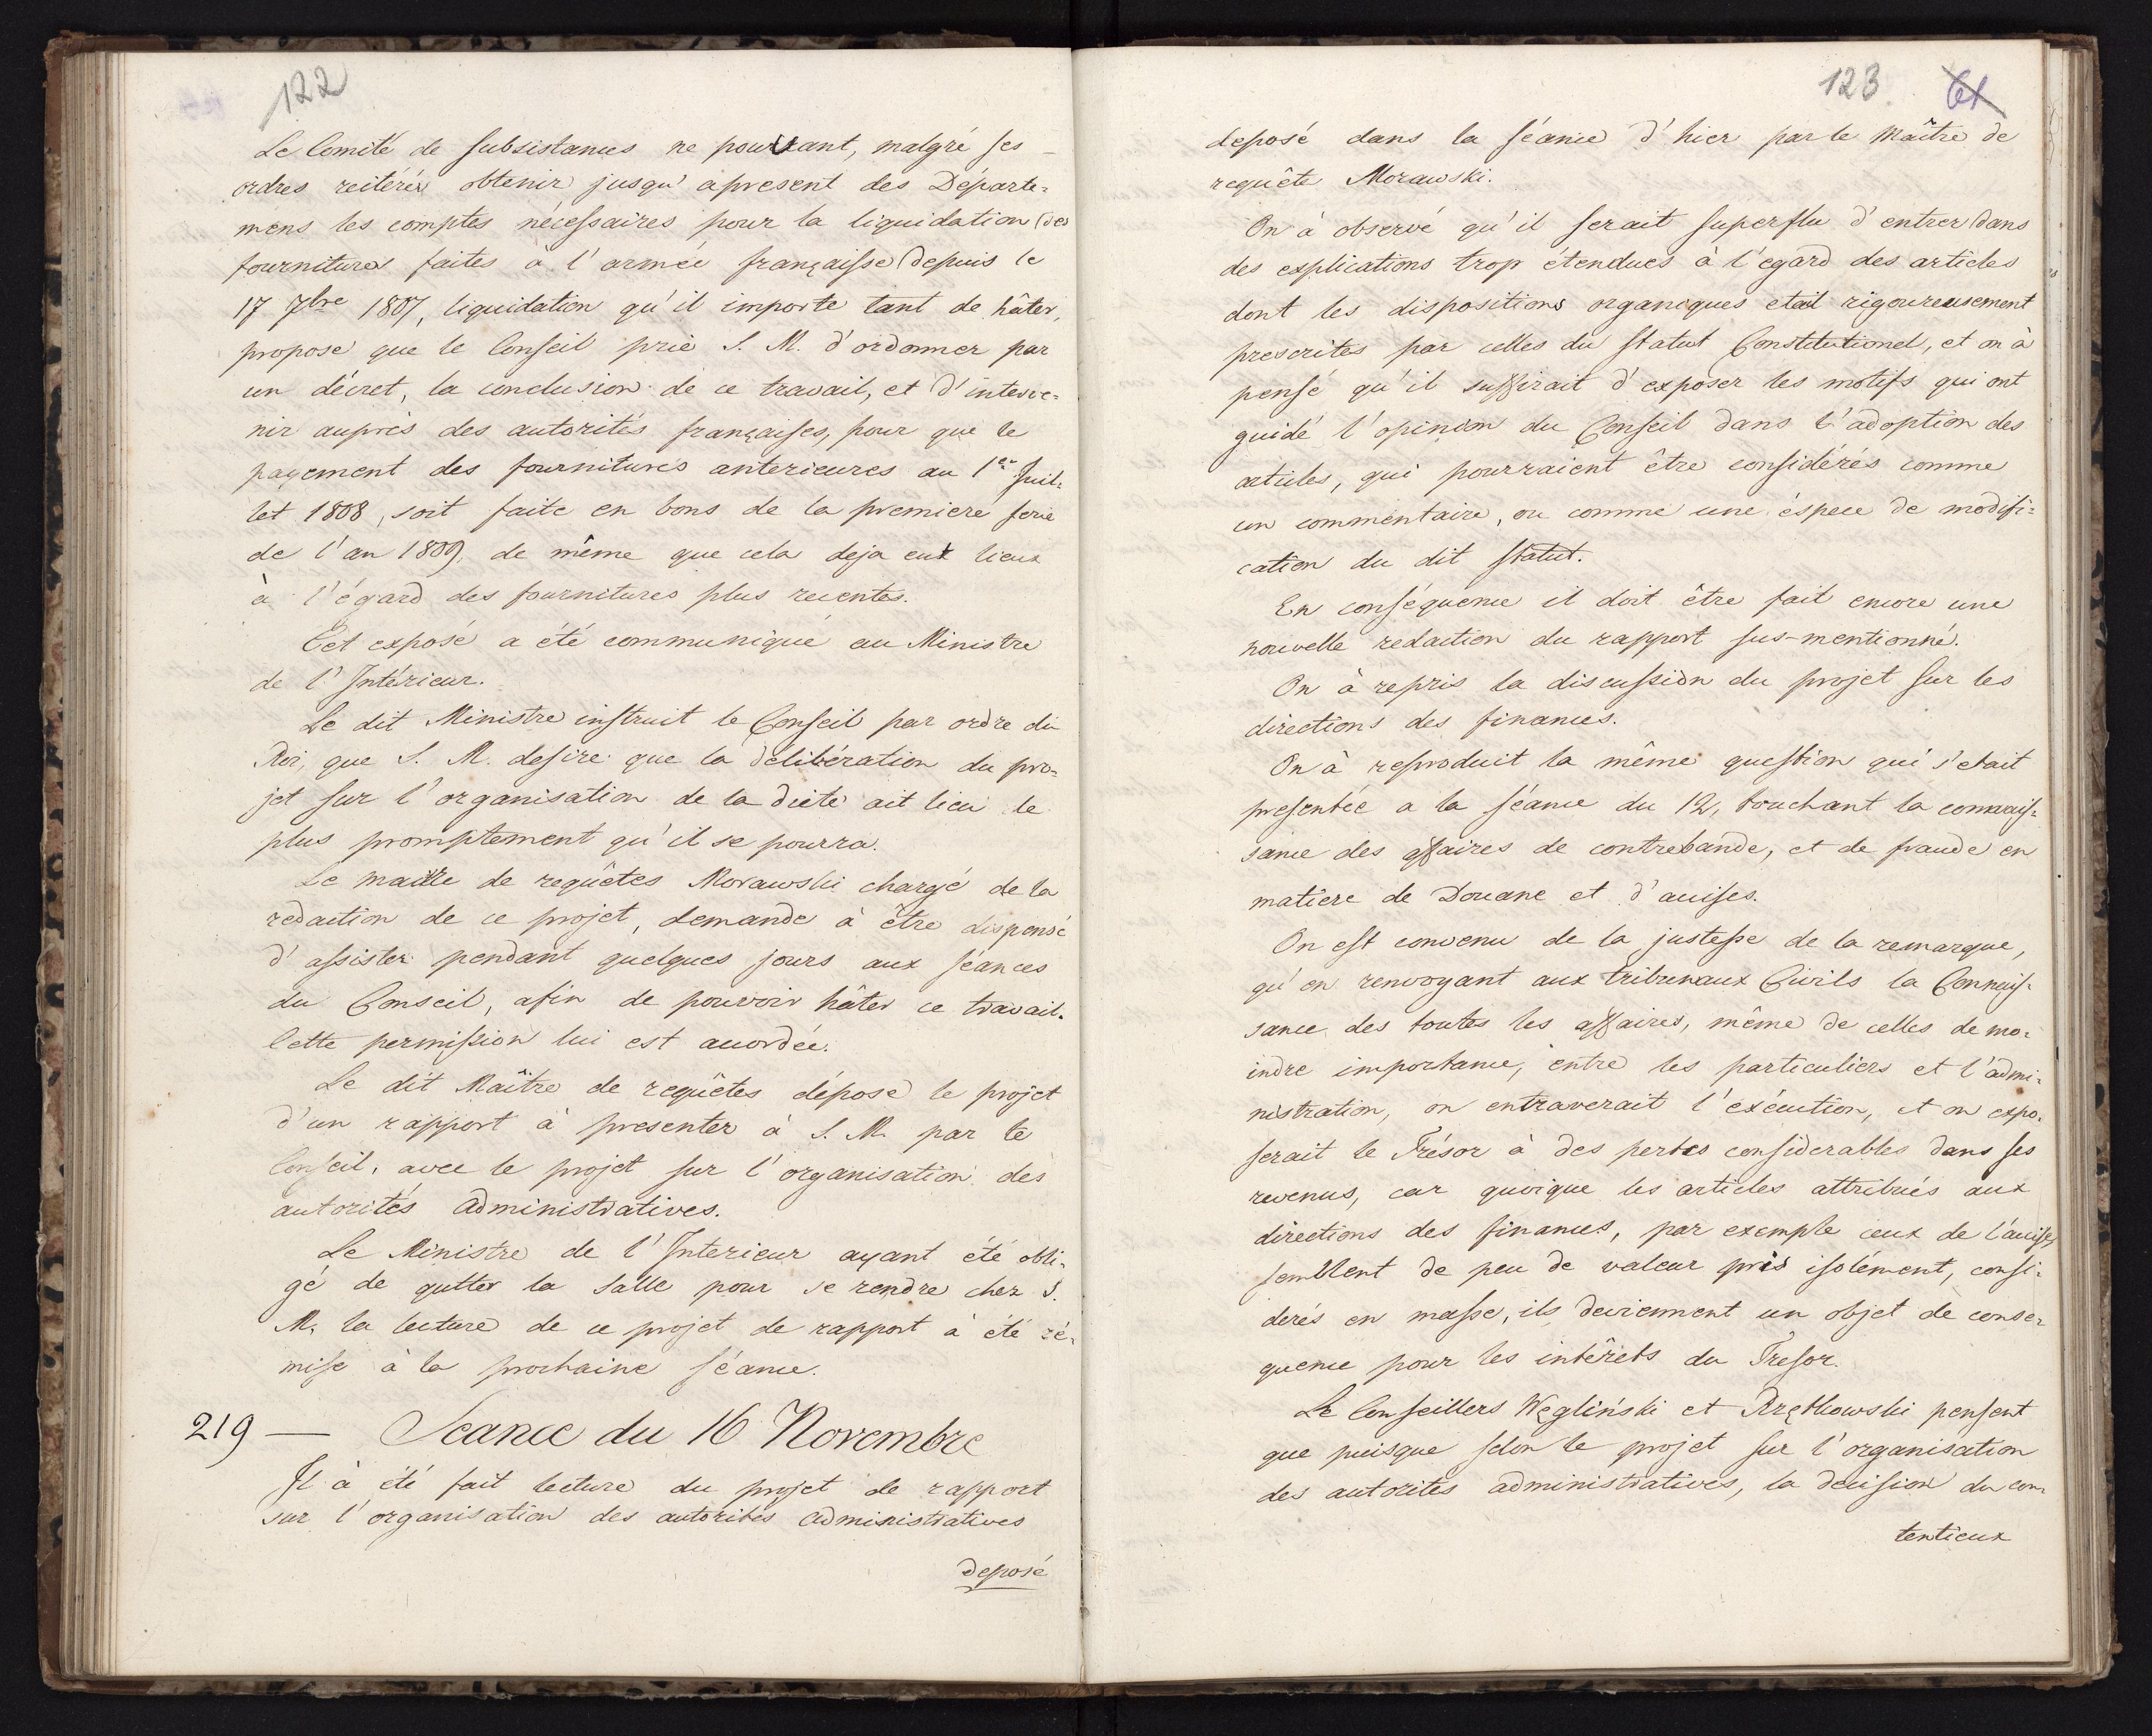 122
Le Comité de subsistances ne pouvant, malgré ses
ordres reiterés obtenir jusqu'apresent des Départe-
mens les comptes nécessaires pour la liquidation des
fournitures faites à l'armée françaisse depuis le
17 7bre 1807, liquidation qu'il importe tant de hâter,
propose que le Conseil prie S. M. d'ordonner par
un décret, la conclusion de ce travail, et d'interve-
nir auprès des autorités françaises, pour que le
payement des fournitures anterieures au 1er Juil-
let 1808, soit faite en bons de la premiere serie
de l'an 1809, de même que cela deja eut lieux
à l'égard des fournitures plus recentes.
Cet exposé a été communiqué au Ministre
de l'Intérieur.
Le dit Ministre instruit le Conseil par ordre du
Roi, que S. M. desire que la délibération du pro-
jet sur l'organisation de la diete ait lieu le
plus promptement qu'il se pourra.
Le maitre de requêtes Morawski chargé de la
redaction de ce projet, demande à être dispensé
d'assister pendant quelques jours aux séances
du Conseil, afin de pouvoir hâter ce travail.
Cette permission lui est accordée.
Le dit Maître de requêtes dépose le projet
d'un rapport à presenter à S. M. par le
Conseil, avec le projet sur l'organisation des
autorités administratives.
Le Ministre de l'Interieur ayant été obli-
gé de qutter la salle pour se rendre chez S.
M. la lecture de ce projet de rapport à été ré-
mise à la prochaine séance.
219 — Seance du 16 Novembre
Il à été fait lecture du projet de rapport
sur l'organisation des autorités administratives
deposé
123 61
deposé dans la séance d'hier par le Maître de
requête Morawski.
On à observé qu'il serait superflu d'entrer dans
des explications trop étendues à l'egard des articles
dont les dispositions organiques etait rigoureusement
prescrites par celles du Statut Constitutionel, et on à
pensé qu'il suffirait d'exposer les motifs qui ont
guidé l'opinion du Conseil dans l'adoption des
articles, qui pourraient être considérés comme
un commentaire, ou comme une éspece de modifi-
cation du dit Statut.
En conséquence il doit être fait encore une
nouvelle redaction du rapport sus-mentionné.
On à repris la discussion du projet sur les
directions des finances.
On à reproduit la même question qui s'etait
presentée a la séance du 12, touchant la connais-
sance des affaires de contrebande, et de fraude en
matière de Douane et d'accises.
On est convenu de la justesse de la remarque,
qu'en renvoyant aux tribunaux Civils la Connais-
sance des toutes les affaires, même de celles de mo-
indre importance, entre les particuliers et l'admi-
nistration, on entraverait l'exécution, et on expo-
serait le Trésor à des pertes considerables dans ses
revenus, car quoique les articles attribués aux
directions des finances, par exemple ceux de l'accise,
semblent de peu de valeur pris isolément, consi-
derés en masse, ils deviennent un objet de conse-
quence pour les intêrets du Tresor.
Le Conseillers Węgliński et Rzętkowski pensent
que puisque selon le projet sur l'organisation
des autorités administratives, la decision du con-
tentieux